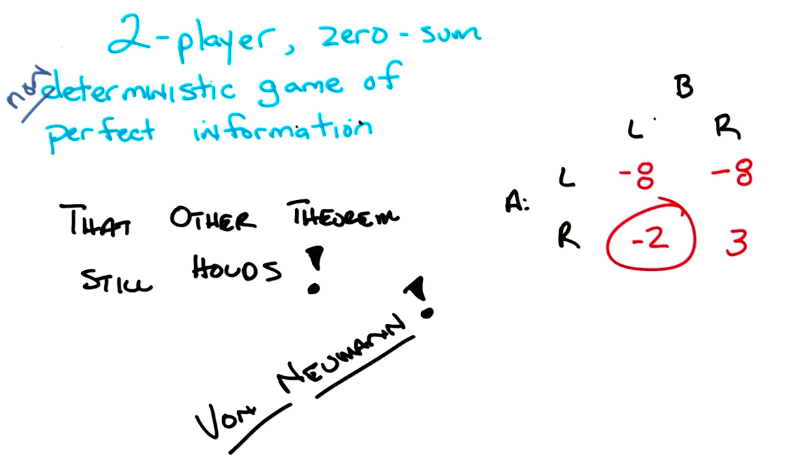 2-player, zero-sum
non deterministic game of
perfect information
THAT OTHER THEOREM
STILL HOLDS!
VON NEUMANN!
B
L R
A: L -8 -8
R -2 3